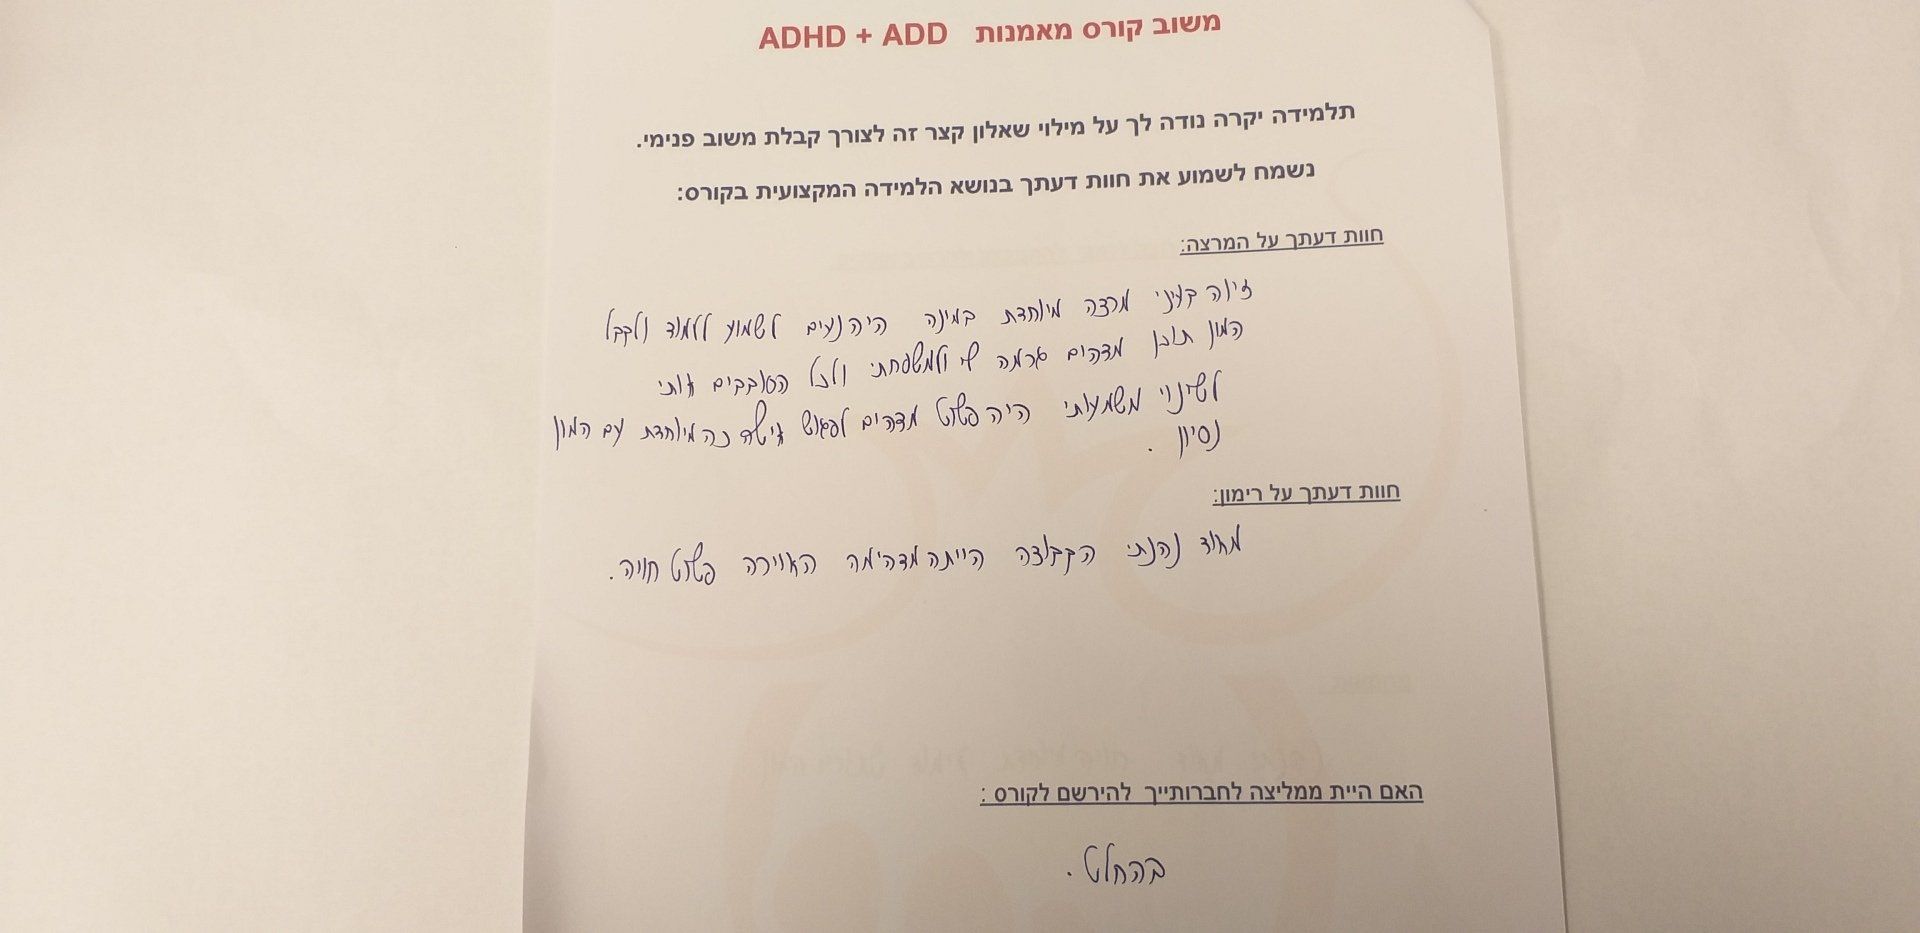 משוב קורס מאמנות ADHD + ADD
תלמידה יקרה נודה לך על מילוי שאלון קצר זה לצורך קבלת משוב פנימי.
נשמח לשמוע את חוות דעתך בנושא הלמידה המקצועית בקורס:
חוות דעתך על המרצה:
זיוה בעיני מרצה מיוחדת במינה היה נעים לשמוע ללמוד ולקבל
המון תוכן מדהים גרמה לי ולמשפחתי ולכל הסובבים אותי
לשינוי משמעותי היה פשוט מדהים לפגוש אישה כה מיוחדת עם המון
נסיון.
חוות דעתך על רימון:
מאוד נהנתי הקבוצה הייתה מדהימה האוירה פשוט חויה.
האם היית ממליצה לחברותייך להירשם לקורס :
בהחלט.